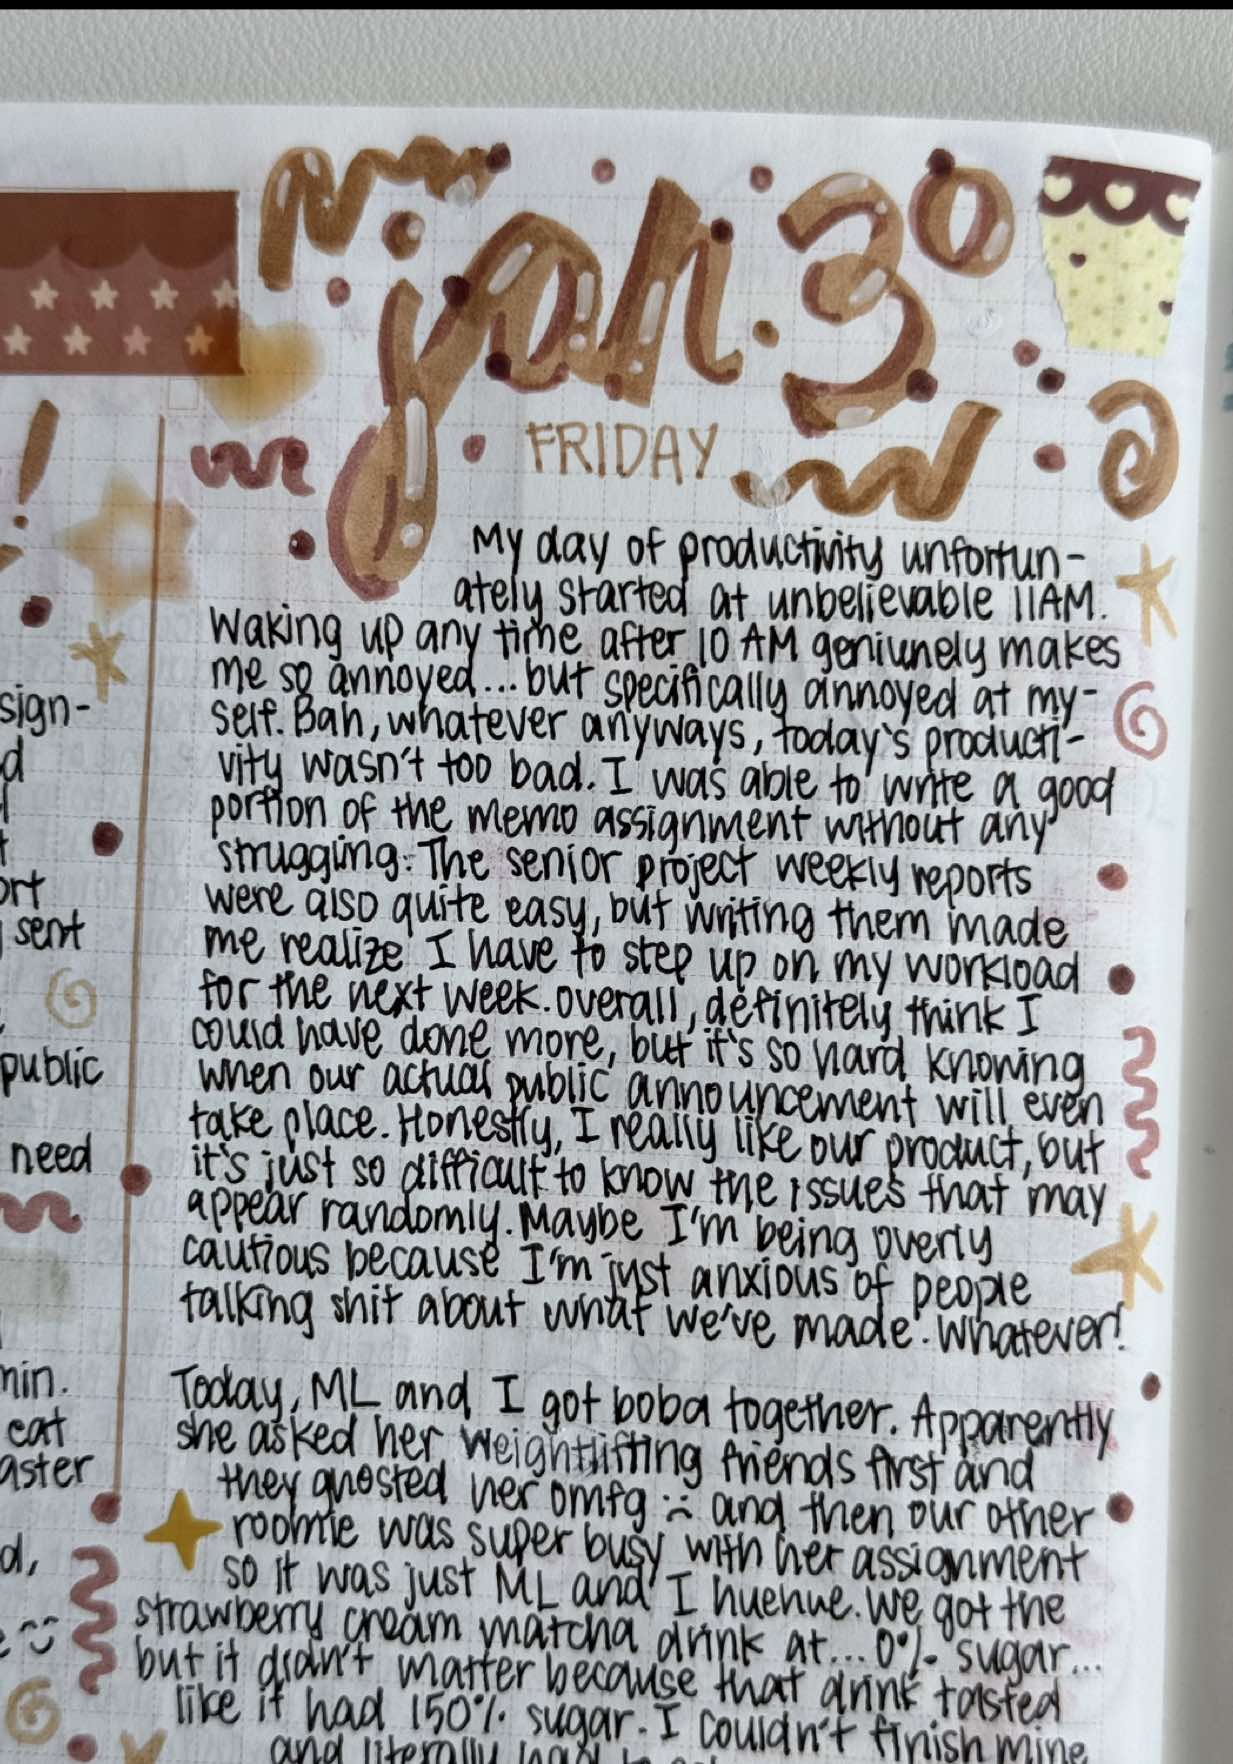 jan. 30
FRIDAY
My day of productivity unfortun-
ately started at unbelievable 11AM.
Waking up any time after 10 AM geniunely makes
me so annoyed... but specifically annoyed at my-
self. Bah, whatever anyways, today's producti-
vity wasn't too bad. I was able to write a good
portion of the memo assignment without any
struggling. The senior project weekly reports
were also quite easy, but writing them made
me realize I have to step up on my workload
for the next week. overall, definitely think I
could have done more, but it's so hard knowing
when our actual public announcement will even
take place. Honestly, I really like our product, but
it's just so difficult to know the issues that may
appear randomly. Maybe I'm being overly
cautious because I'm just anxious of people
talking shit about what we've made. whatever!
Today, ML and I got boba together. Apparently
she asked her weightlifting friends first and
they ghosted her omfg :( and then our other
roomie was super busy with her assignment
so it was just ML and I huehue. We got the
strawberry cream matcha drink at... 0% sugar...
but it didn't matter because that drink tasted
like it had 150% sugar. I couldn't finish mine
and literally had to
!
sign-
d
ort
sent
public
need
min.
eat
aster
d,